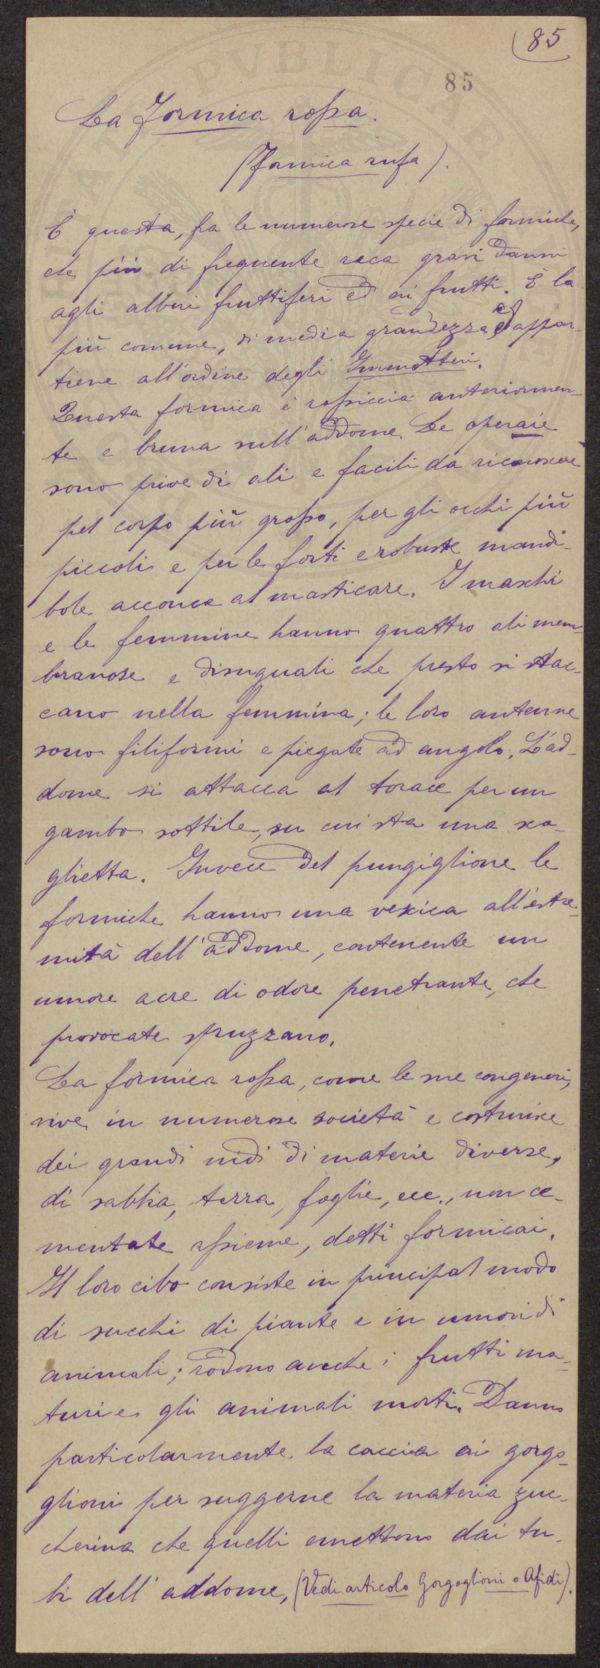 85
85
La Formica rossa.
(Formica rufa).
È questa, fra le numerose specie di formiche,
che più di frequente reca gravi danni
agli alberi fruttiferi ed ai frutti. È la
più comune, di media grandezza ed appar-
tiene all'ordine degli Immotteri.
Questa formica è rossiccia anteriormen-
te e bruna sull'addome. Le operaie
sono prive di ali e facili da riconoscere
pel corpo più grosso, per gli occhi più
piccoli e per le forti e robuste mandi-
bole acconce a masticare. I maschi
e le femmine hanno quattro ali mem-
branose e disuguali che presto si stac-
cano nella femmina; le loro antenne
sono filiformi e piegate ad angolo. L'ad-
dome si attacca al torace per un
gambo sottile, su cui sta una sca-
glietta. Invece del pungiglione le
formiche hanno una vescica all'estre-
mità dell'addome, contenente un
umore acre di odore penetrante, che
provocate spruzzano.
La formica rossa, come le sue congeneri,
vive in numerose società e costruisce
dei grandi nidi di materie diverse,
di sabbia, terra, foglie, ecc., non ce-
mentate assieme, detti formicai.
Il loro cibo consiste in principal modo
di succhi di piante e in umori di
animali; rodono anche i frutti ma-
turi e gli animali morti. Danno
particolarmente la caccia ai gorgo-
glioni per suggerne la materia zuc-
cherina che quelli emettono dai tu-
bi dell'addome, (Vedi articolo Gorgoglioni o Afidi).